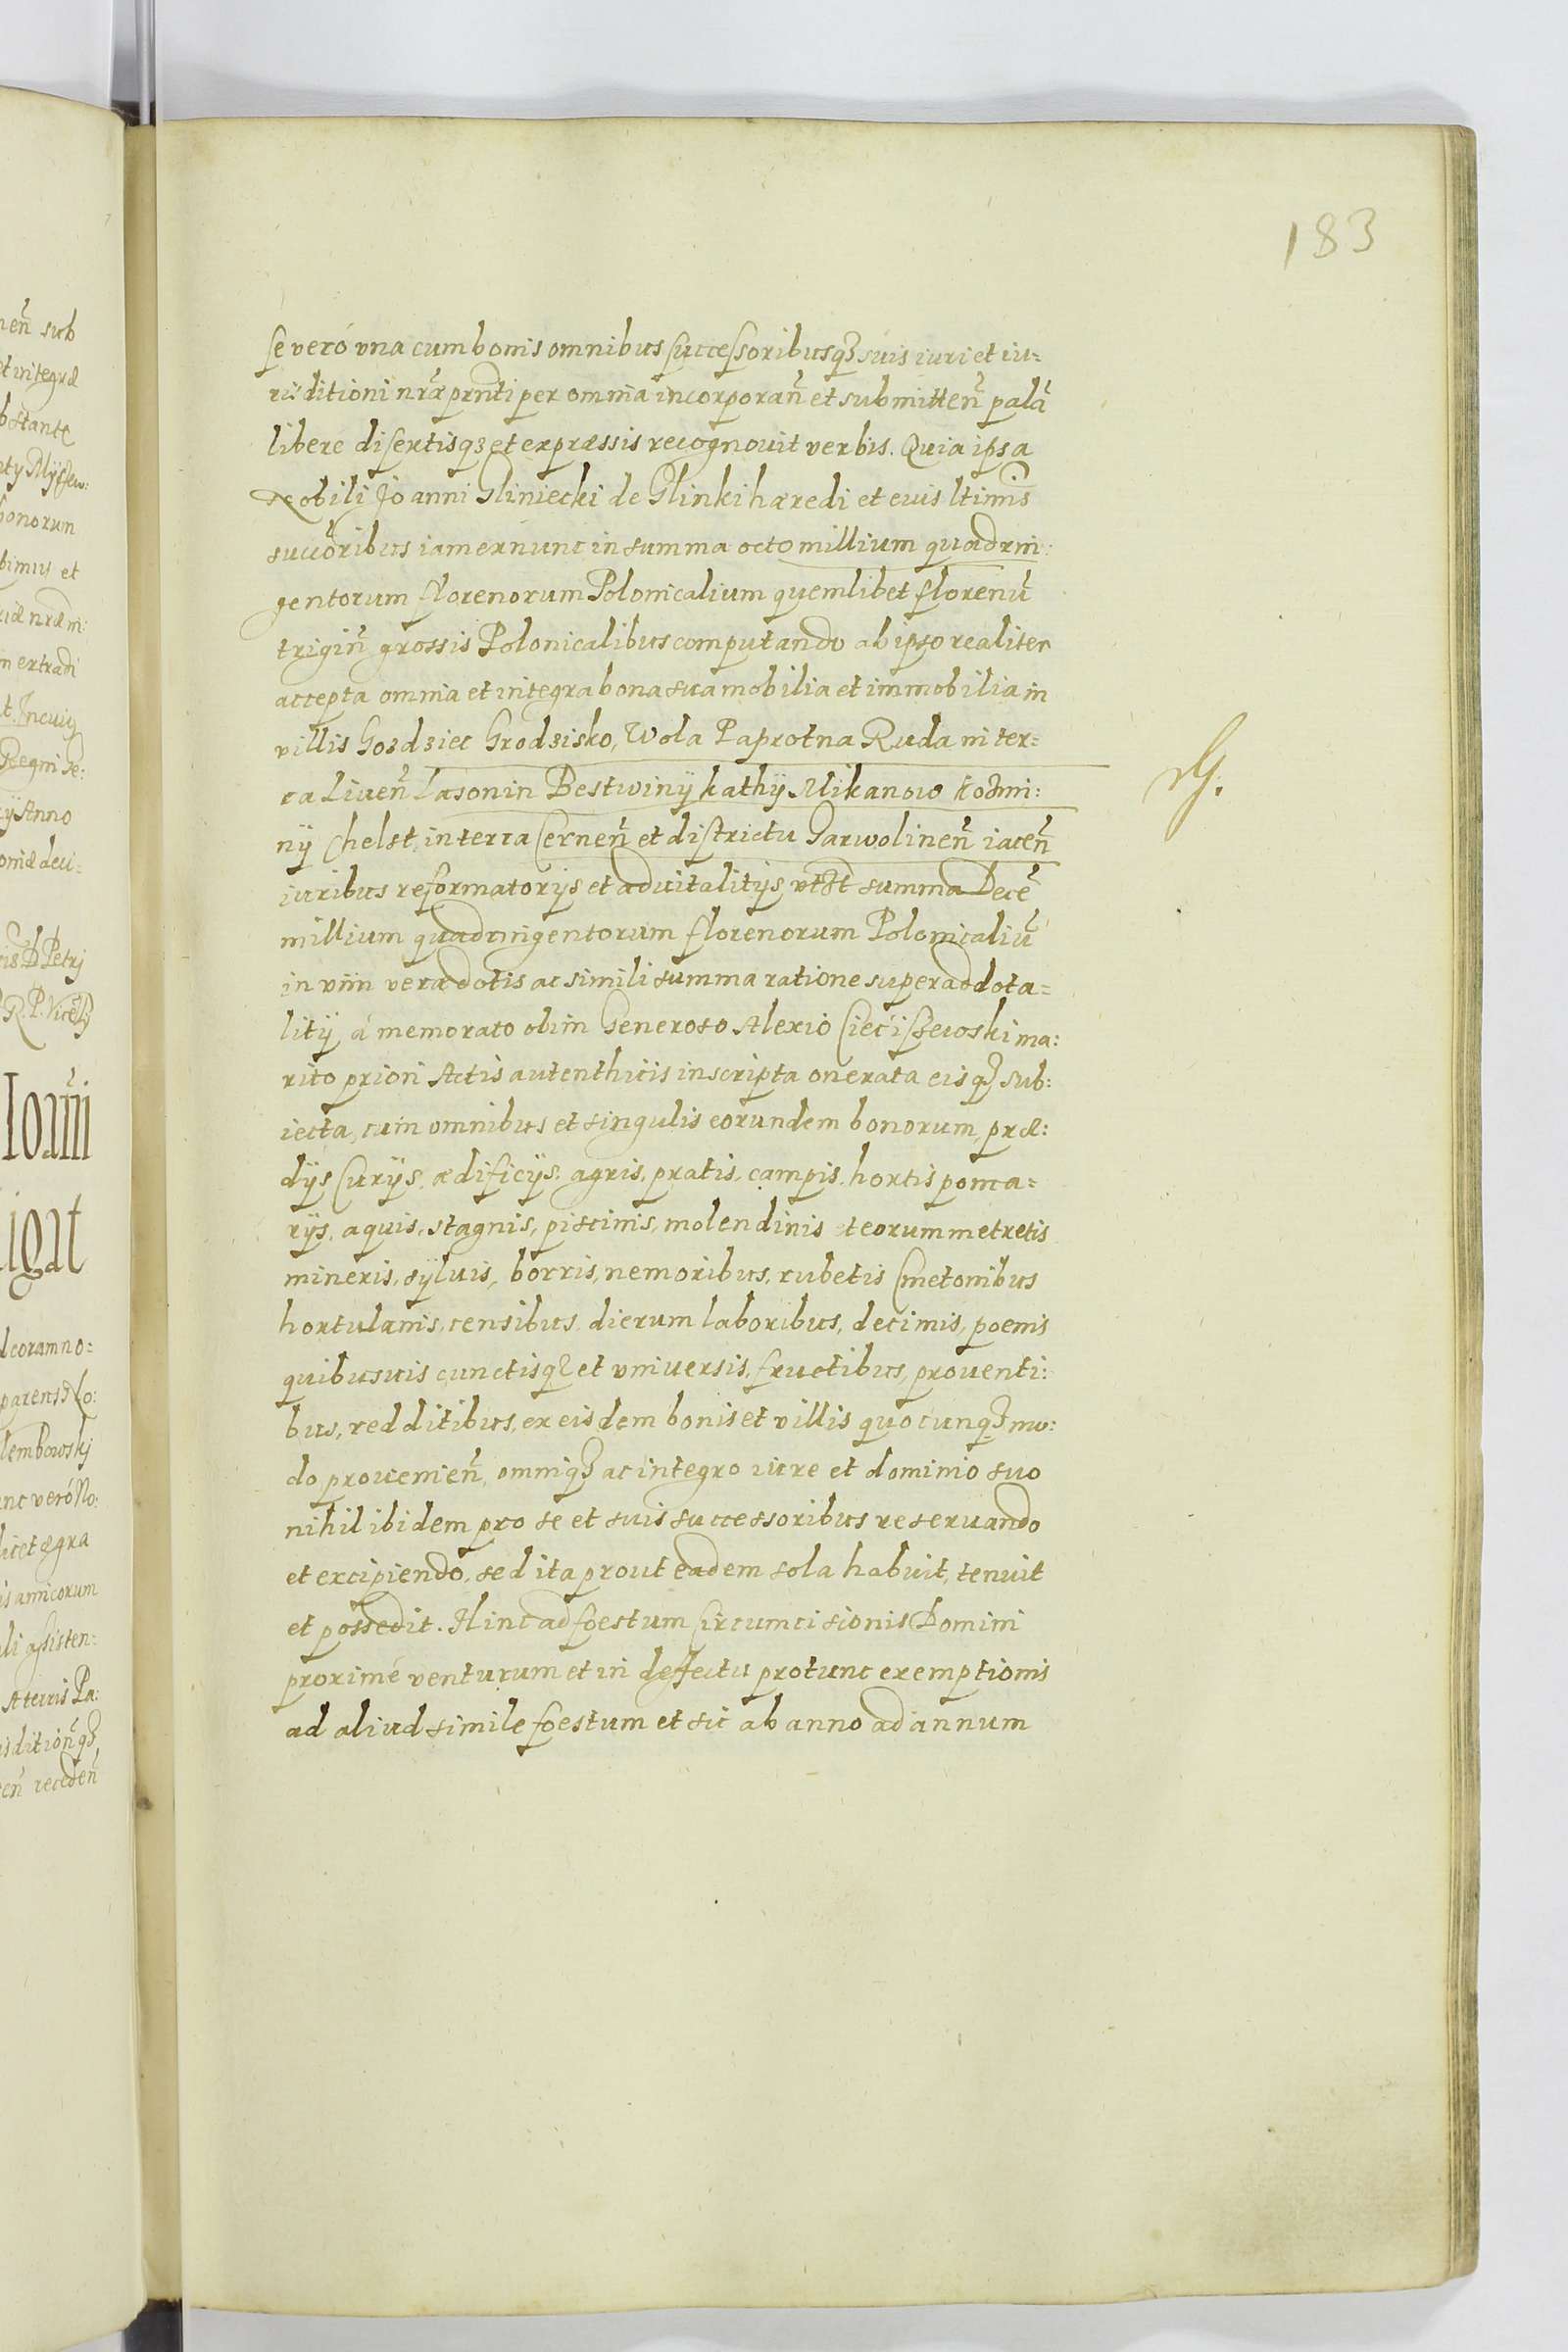 183
se veró vna cum bonis omnibus successoribusqȝ suis iuri et iu=
risditioni nr̃æ prn̄ti per omnia incorporan̄ et submitten̄ palā
libere disertisqȝ et expræssis recognouit verbis. Quia ipsa
Nobili Joanni Gliniecki de Glinki hæredi et euis ltimis̄
succōribus iam ex nunc in summa octo millium quadrin:
gentorum florenorum Polonicalium quemlibet florenū
trigin̄ grossis Polonicalibus computando ab ipso realiter
accepta omnia et integra bona sua mobilia et immobilia in
villis Gozdziec Grodzisko, Wola Paprotna Ruda in ter=
ra Liuen̄ Lasonin Bestwinÿ kathÿ Mikanow Kozmi:
nÿ Chelst, in terra Cernen̄ et districtu Garwolinen̄ iacen̄
iuribus reformatorÿs et aduitalitÿs vtst summa Decē
millium quadringentorum florenorum Polonicaliū
in vim veræ dotis ac simili summa ratione superaddota=
litÿ á memorato olim Generoso Alexio Ciecissewski ma:
rito priori Actis autenthicis inscripta onerata eisqȝ sub:
iecta, cum omnibus et singulis eorundem bonorum, præ:
dÿs Curÿs, ædificÿs, agris, pratis, campis, hortis poma=
rÿs, aquis, stagnis, piscinis, molendinis teorum metretis
mineris, sÿluis, borris, nemoribus, rubetis Cmetonibus
hortulanis, censibus, dierum laboribus, decimis, poenis
quibusuis cunctisqȝ et vniuersis, fructibus, prouenti:
bus, redditibus, ex eisdem bonis et villis quocunqȝ mo:
do prouenien̄, omniqȝ ac integro iure et dominio suo
nihil ibidem pro se et suis successoribus reseruando
et excipiendo, sed ita prout eadem sola habuit, tenuit
et possedit. Hinc ad foestum Circumcisionis Domini
proximé venturum et in deffectu protunc exemptionis
ad aliud simile foestum et sic ab anno ad annum